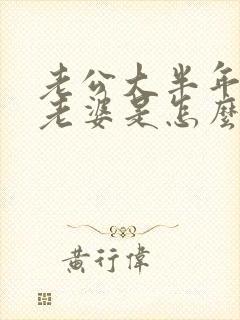 老公大半年
老婆是怎麼
黃行偉